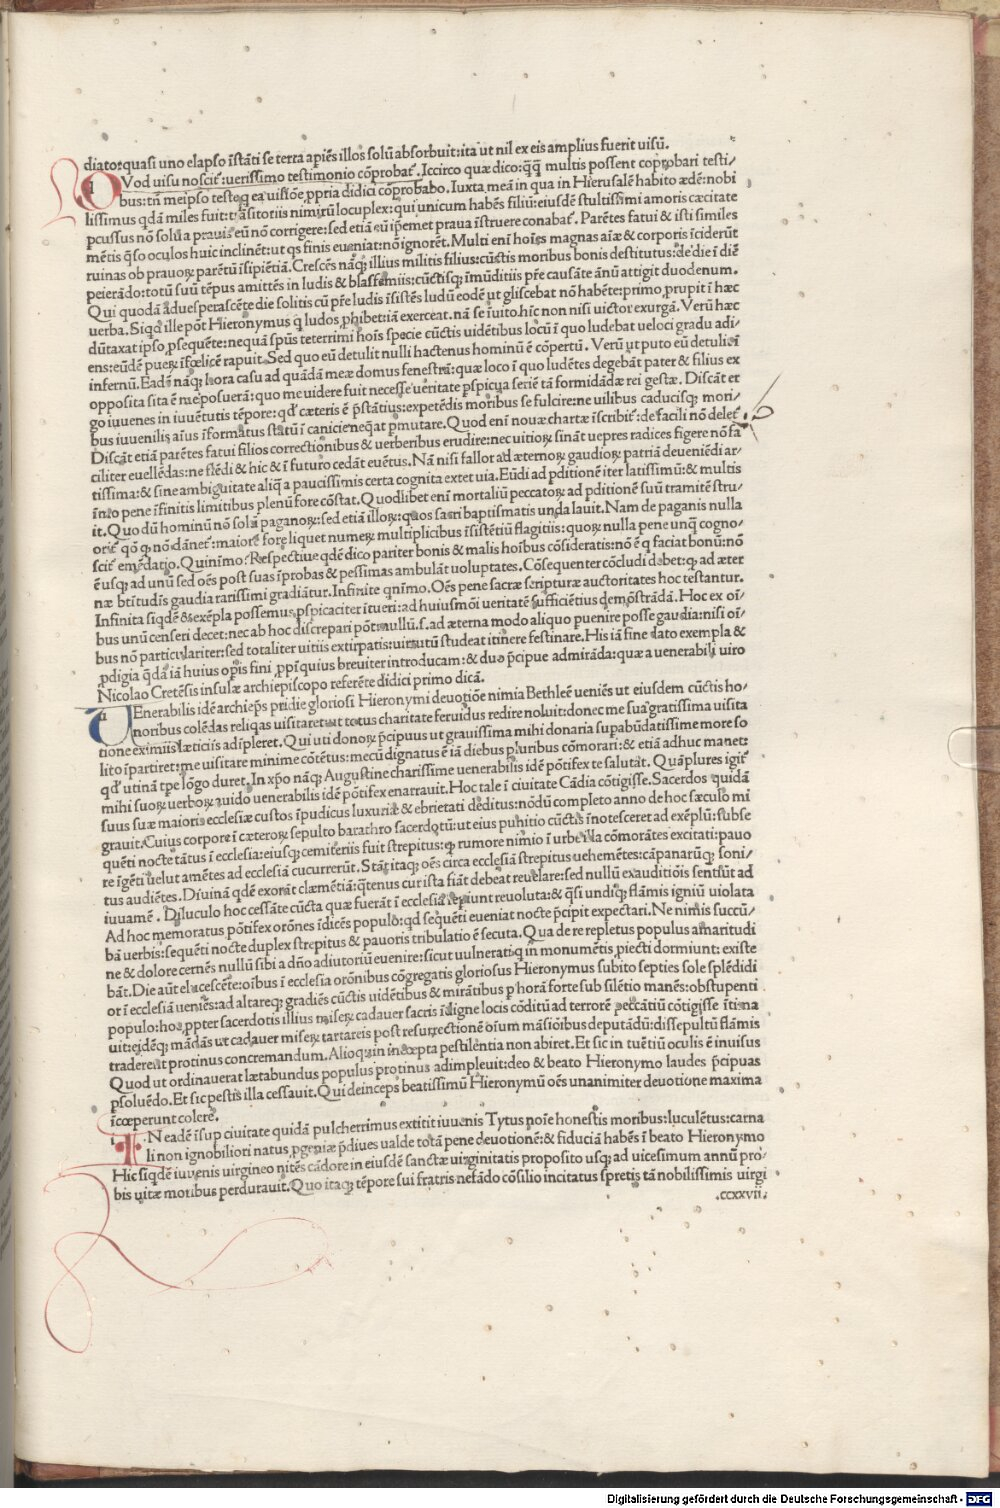 diator quasi uno elapso ĩstãti se terra apiẽs illos solũ absorbuit: ita ut nil ex eis amplius fuerit uisũ.
QVod uisu noscit᷑: uerissimo testimonio cõprobat᷑. Iccirco quæ dico: q̃q̃ multis possent coprobari testi/
bus: tñ meipso teste q̨ ea uisiõe ꝓpria didici cõprobabo. Iuxta meã in qua in Hierusalẽ habito ædẽ: nobi
lissimus qdã miles fuit: trãsitoriis nimirũ locuplex: qui unicum habẽs filiũ: eiusdẽ stultissimi amoris cæcitate
ꝑcussus nõ solũ a prauis eũ nõ corrigere: sed etiã eũ ipemet praua ĩstruere conabat᷑. Parẽtes fatui & isti similes
mẽtis q̃so oculos huic inclinẽt: ut qs finis eueniat: nõ ignorẽt. Multi eni hoĩes magnas aĩæ & corporis ĩciderũt
ruinas ob prauoꝝ parẽtũ ĩsipiẽtiã. Crescẽs nãq̨ illius militis filius: cũctis moribus bonis destitutus: de die ĩ diẽ
peierãdo: totũ suũ tẽpus amittẽs in ludis & blasfemiis: cũctisq̨ ĩmũditiis pr̃e causãte ãnũ attigit duodenum.
Qui quodã aduesperascẽte die solitis cũ pr̃e ludis ĩsistẽs ludũ eodẽ ut gliscebat nõ habẽte: primo ꝓrupit ĩ hæc
uerba. Siqd ille põt Hieronymus q ludos ꝓhibet: iã exerceat. nã se ĩuito hĩc non nisi uictor exurgã. Verũ hæc
dũtaxat ipso ꝓsequẽte: nequã spũs teterrimi hoĩs specie cũctis uidẽtibus locũ ĩ quo ludebat ueloci gradu adi/
ens: eũdẽ pueꝝ ĩfœlicẽ rapuit. Sed quo eũ detulit nulli hactenus hominũ ẽ cõpertũ. Verũ ut puto eũ detulit ĩ
infernũ. Eadẽ nãq̨ hora casu ad quãdã meæ domus fenestrã: quæ loco ĩ quo ludẽtes degebãt pater & filius ex
opposita sita ẽ me posuerã: quo me uidere fuit necesse ueritate ꝑspicua seriẽ tã formidãdæ rei gestæ. Discãt er
go iuuenes in iuuẽtutis tẽpore: qđ cæteris ẽ p̃stãtius: expetẽdis moribus se fulcire: ne uilibus caducisq̨ mori/
bus iuuenilis aĩus ĩformatus statũ ĩ canicie neq̃at ꝑmutare. Quod eni nouæ chartæ iscribit᷑: de facili nõ delet᷑.
Discãt etiã parẽtes fatui filios correctionibus & uerberibus erudire: nec uitioꝝ sinãt uepres radices figere nõ fa
ciliter euellẽdas: ne flẽdi & hic & ĩ futuro cedãt euẽtus. Nã nisi fallor ad æternoꝝ gaudioꝝ patriã deueniẽdi ar/
tissima: & sine ambiguitate aliq̃ a paucissimis certa cognita extet uia. Eũdi ad ꝑditionẽ iter latissimũ: & multis
ĩmo pene ĩfinitis limitibus plenũ fore cõstat. Quodlibet eni mortaliũ peccatoꝝ ad ꝑditionẽ suũ tramitẽ stru/
it. Quo dũ hominũ nõ solũ paganoꝝ: sed etiã illoꝝ: quos sacri baptismatis unda lauit. Nam de paganis nulla
orit᷑ qõ q̨ nõ dãnet᷑: maiorẽ fore liquet numeꝝ multiplicibus ĩsistẽtiũ flagitiis: quoꝝ nulla pene unq̃ cogno/
scit᷑ emẽdatio. Quinĩmo: Respectiue qdẽ dico pariter bonis & malis hoĩbus cõsideratis: nõ ẽ q̨ faciat bonũ: nõ
ẽ usq̨ ad unũ sed oẽs post suas ĩprobas & pessimas ambulãt uoluptates. Cõsequenter cõcludi debet: q̨ ad æter
næ btĩtudĩs gaudia rarissimi gradiãtur. Infinite qnĩmo. Oẽs pene sacræ scripturæ auctoritates hoc testantur.
Infinita siqdẽ & exẽpla possemus ꝑspicaciter ĩtueri: ad huiusmõi ueritatẽ sufficiẽtius demõstrãdã. Hoc ex oĩ/
bus unũ censeri decet: nec ab hoc discrepari põt: nullũ .s. ad æterna modo aliquo puenire posse gaudia: nisi oĩ/
bus nõ particulariter: sed totaliter uitiis extirpatis: uirtutũ studeat itinere festinare. His iã fine dato exempla &
ꝓdigia q̃dã iã huius opis fini ꝓpĩquius breuiter introducam: & duo p̃cipue admirãda: quæ a uenerabili uiro
Nicolao Cretẽsis insulæ archiepiscopo referẽte didici primo dicã.
VEnerabilis idẽ archiep̃s pridie gloriosi Hieronymi deuotiõe nimia Bethleẽ ueniẽs ut eiusdem cũctis ho/
noribus colẽdas reliqas uisitaret: ut totus charitate feruidus redire noluit: donec me sua gratissima uisita
tione eximiis læticiis adĩpleret. Qui uti donoꝝ p̃cipuus ut grauissima mihi donaria supabũdatissime more so
lito ĩpartiret: me uisitare minime cõtẽtus: mecũ dignatus ẽ iã diebus pluribus cõmorari: & etiã adhuc manet:
qđ utinã tpe lõgo duret. In xp̃o nãq̨ Augustine charissime uenerabilis idẽ põtifex te salutat. Quãplures igit᷑
mihi suoꝝ uerboꝝ auido uenerabilis idẽ põtifex enarrauit. Hoc tale ĩ ciuitate Cãdia cõtigisse. Sacerdos quidã
suus suæ maioris ecclesiæ custos ĩpudicus luxuriæ & ebrietati deditus: nõdũ completo anno de hoc sæculo mi
grauit. Cuius corpore ĩ cæteroꝝ sepulto barathro sacerdotũ: ut eius punitio cũctis ĩnotesceret ad exẽplũ: subse
quẽti nocte tãtus ĩ ecclesia: eiusq̨ cemiteriis fuit strepitus: q̨ rumore nimio ĩ urbe illa cõmorãtes excitati: pauo
re ĩgẽti uelut amẽtes ad ecclesiã cucurrerũt. Stãt itaq̨ oẽs circa ecclesiã strepitus uehemẽtes: cãpanarũq̨ soni/
tus audiẽtes. Diuinã qdẽ exorãt clæmẽtiã: q̃tenus cur ista fiãt debeat reuelare: sed nullũ exauditiõis sentiũt ad
iuuamẽ. Diluculo hoc cessãte cũcta quæ fuerãt ĩ ecclesia repiunt reuoluta: & q̃si undiq̨ flãmis igniũ uiolata
Ad hoc memoratus põtifex orõnes ĩdicẽs populo: qđ sequẽti eueniat nocte p̃cipit expectari. Ne nimis succũ/
bã uerbis: sequẽti nocte duplex strepitus & pauoris tribulatio ẽ secuta. Qua de re repletus populus amaritudi
ne & dolore cernẽs nullũ sibi a dño adiutoriũ euenire: sicut uulnerati q in monumẽtis piecti dormiunt: existe
bãt. Die aũt elucescẽte: oĩbus ĩ ecclesia orõnibus cõgregatis gloriosus Hieronymus subito septies sole splẽdidi
or ĩ ecclesiã ueniẽs: ad altareq̨ gradiẽs cũctis uidẽtibus & mirãtibus ꝑ horã forte sub silẽtio manẽs: obstupenti
populo: hoc ꝓpter sacerdotis illius miseꝝ cadauer sacris ĩdigne locis cõditũ ad terrorẽ peccãtiũ cõtigisse ĩtĩna
uit: ejdẽq̨ mãdãs ut cadauer miseꝝ tartareis post resurrectionẽ oĩum mãsiõibus deputãdũ: dissepultũ flãmis
traderent protinus concremandum. Alioquin incœpta pestilẽntia non abiret. Et sic in tuẽtiũ oculis ẽ inuisus
Quod ut ordinauerat lætabundus populus protinus adimpleuit: deo & beato Hieronymo laudes p̃cipuas
ꝑsoluẽdo. Et sic pestis illa cessauit. Qui deinceps beatissimũ Hieronymũ oẽs unanimiter deuotione maxima
ĩcœperunt colere.
IN eadẽ ĩsup ciuitate quidã pulcherrimus extitit iuuenis Tytus noĩe honestis moribus: luculẽtus: carna
li non ignobiliori natus ꝓgeniæ p̃diues ualde totã pene deuotionẽ: & fiduciã habẽs ĩ beato Hieronymo
Hic siqdẽ iuuenis uirgineo nitẽs cãdore in eiusdẽ sanctæ uirginitatis proposito usq̨ ad uicesimum annũ pro/
bis uitæ moribus perdurauit. Quo itaq̨ tẽpore sui fratris nefãdo cõsilio incitatus spretis tã nobilissimis uirgi
.CCXXVII.
Digitalisierung gefördert durch die Deutsche Forschungsgemeinschaft - DFG